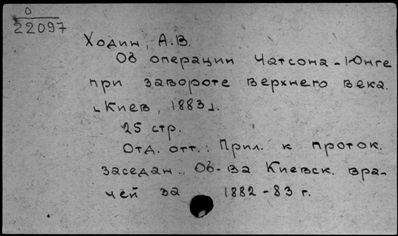 0
22097
Ходин, А.В.
Об операции Чатсона-Юнге
при завороте верхнего века.
[Киев, 1883].
25 стр.
Отд. отт.: Прил. к проток.
заседан. Об-ва Киевск. вра-
чей за 1882-83 г.